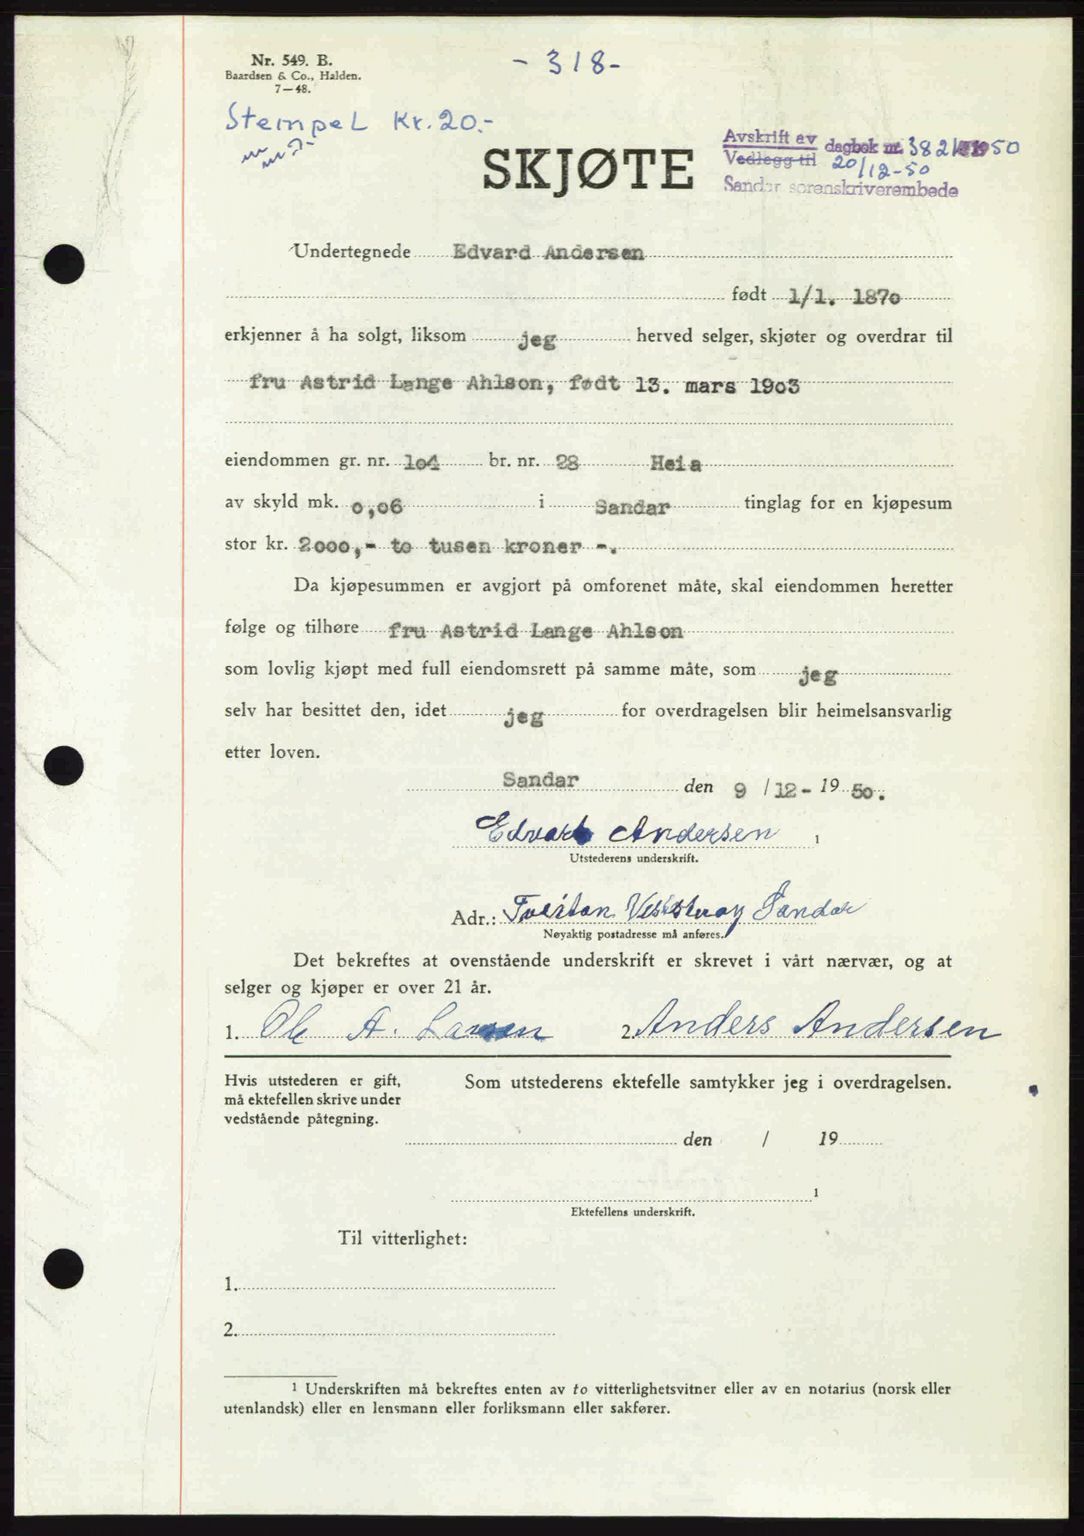 Nr. 549. B.
Baardsen & Co., Halden.
7—48.
- 318-
Stempel Kr. 20.-
Avskrift av
Vedlegg til
dagbok nr. 3821 1950
20/12-50
Sandar sorenskriverembede
SKJØTE
Undertegnede Edvard Andersen
født 1/1. 1870
erkjenner å ha solgt, liksom jeg herved selger, skjøter og overdrar til
fru Astrid Lange Ahlson, født 13. mars 1903
eiendommen gr. nr. 104 br. nr. 28 Heia
av skyld mk. 0,06 i Sandar tinglag for en kjøpesum
stor kr. 2000,- to tusen kroner -.
Da kjøpesummen er avgjort på omforenet måte, skal eiendommen heretter
følge og tilhøre fru Astrid Lange Ahlson
som lovlig kjøpt med full eiendomsrett på samme måte, som jeg
selv har besittet den, idet jeg for overdragelsen blir heimelsansvarlig
etter loven.
Sandar den 9 / 12- 19 50.
Edvard Andersen 1
Utstederens underskrift.
Adr.: Sandar
Nøyaktig postadresse må anføres.
Det bekreftes at ovenstående underskrift er skrevet i vårt nærvær, og at
selger og kjøper er over 21 år.
1. Ole A. Larsen 2. Anders Andersen
Hvis utstederen er gift,
må ektefellen skrive under
vedstående påtegning.
Som utstederens ektefelle samtykker jeg i overdragelsen.
den / 19
1
Ektefellens underskrift.
Til vitterlighet:
1.
2.
1 Underskriften må bekreftes enten av to vitterlighetsvitner eller av en notarius (norsk eller
utenlandsk) eller en lensmann eller forliksmann eller sakfører.